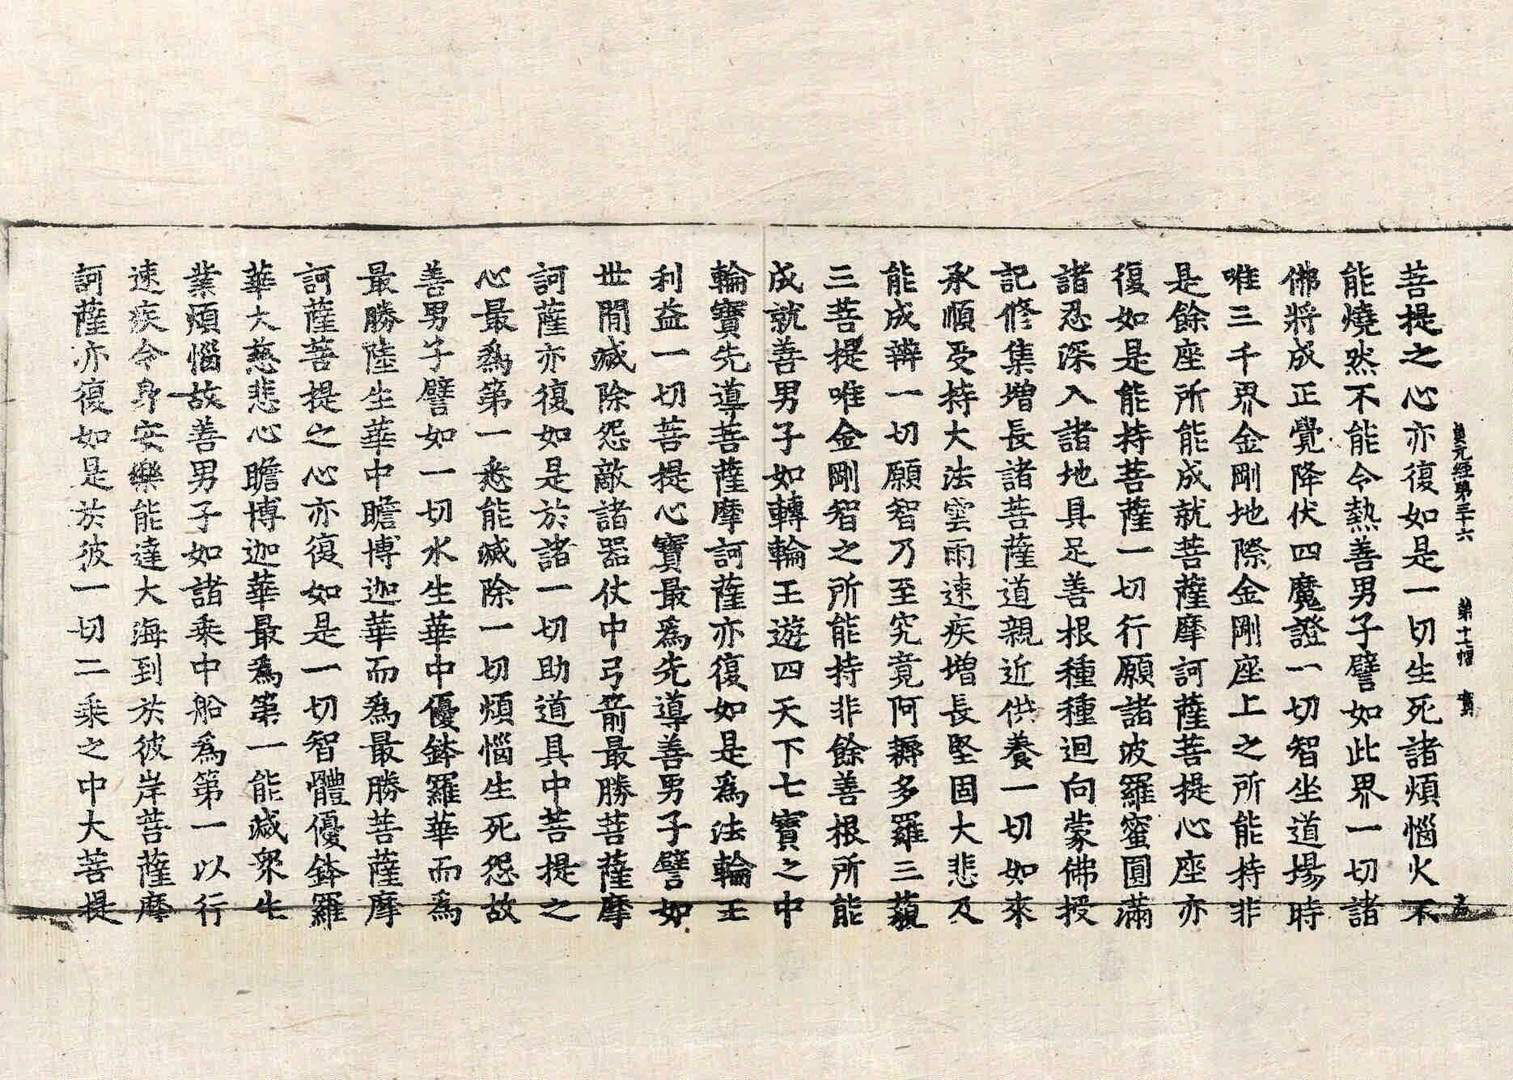 貞元經第三十六　第十七幅　賓
菩提之心亦復如是一切生死諸煩惱火不
能燒然不能令熱善男子譬如此界一切諸
佛將成正覺降伏四魔證一切智坐道場時
唯三千界金剛地際金剛座上之所能持非
是餘座所能成就菩薩摩訶薩菩提心座亦
復如是能持菩薩一切行願諸波羅蜜圓滿
諸忍深入諸地具足善根種種迴向蒙佛授
記修集增長諸菩薩道親近供養一切如來
承順受持大法雲雨速疾增長堅固大悲及
能成辦一切願智乃至究竟阿耨多羅三藐
三菩提唯金剛智之所能持非餘善根所能
成就善男子如轉輪王遊四天下七寶之中
輪寶先導菩薩摩訶薩亦復如是為法輪王
利益一切菩提心寶最為先導善男子譬如
世間滅除怨敵諸器仗中弓箭最勝菩薩摩
訶薩亦復如是於諸一切助道具中菩提之
心最為第一悉能滅除一切煩惱生死怨故
善男子譬如一切水生華中優鉢羅華而為
最勝陸生華中瞻博迦華而為最勝菩薩摩
訶薩菩提之心亦復如是一切智體優鉢羅
華大慈悲心瞻博迦華最為第一能滅眾生
業煩惱故善男子如諸乘中船為第一以行
速疾令身安樂能達大海到於彼岸菩薩摩
訶薩亦復如是於彼一切二乘之中大菩提